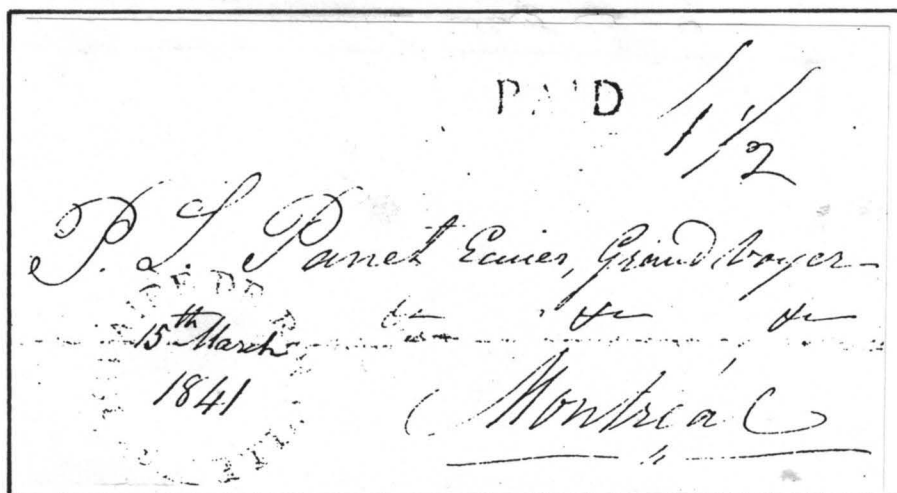 PAID
1 1/2
P. L. Panet Ecuier, Grand Voyer
&c &c &c
15th March
1841
Montréal